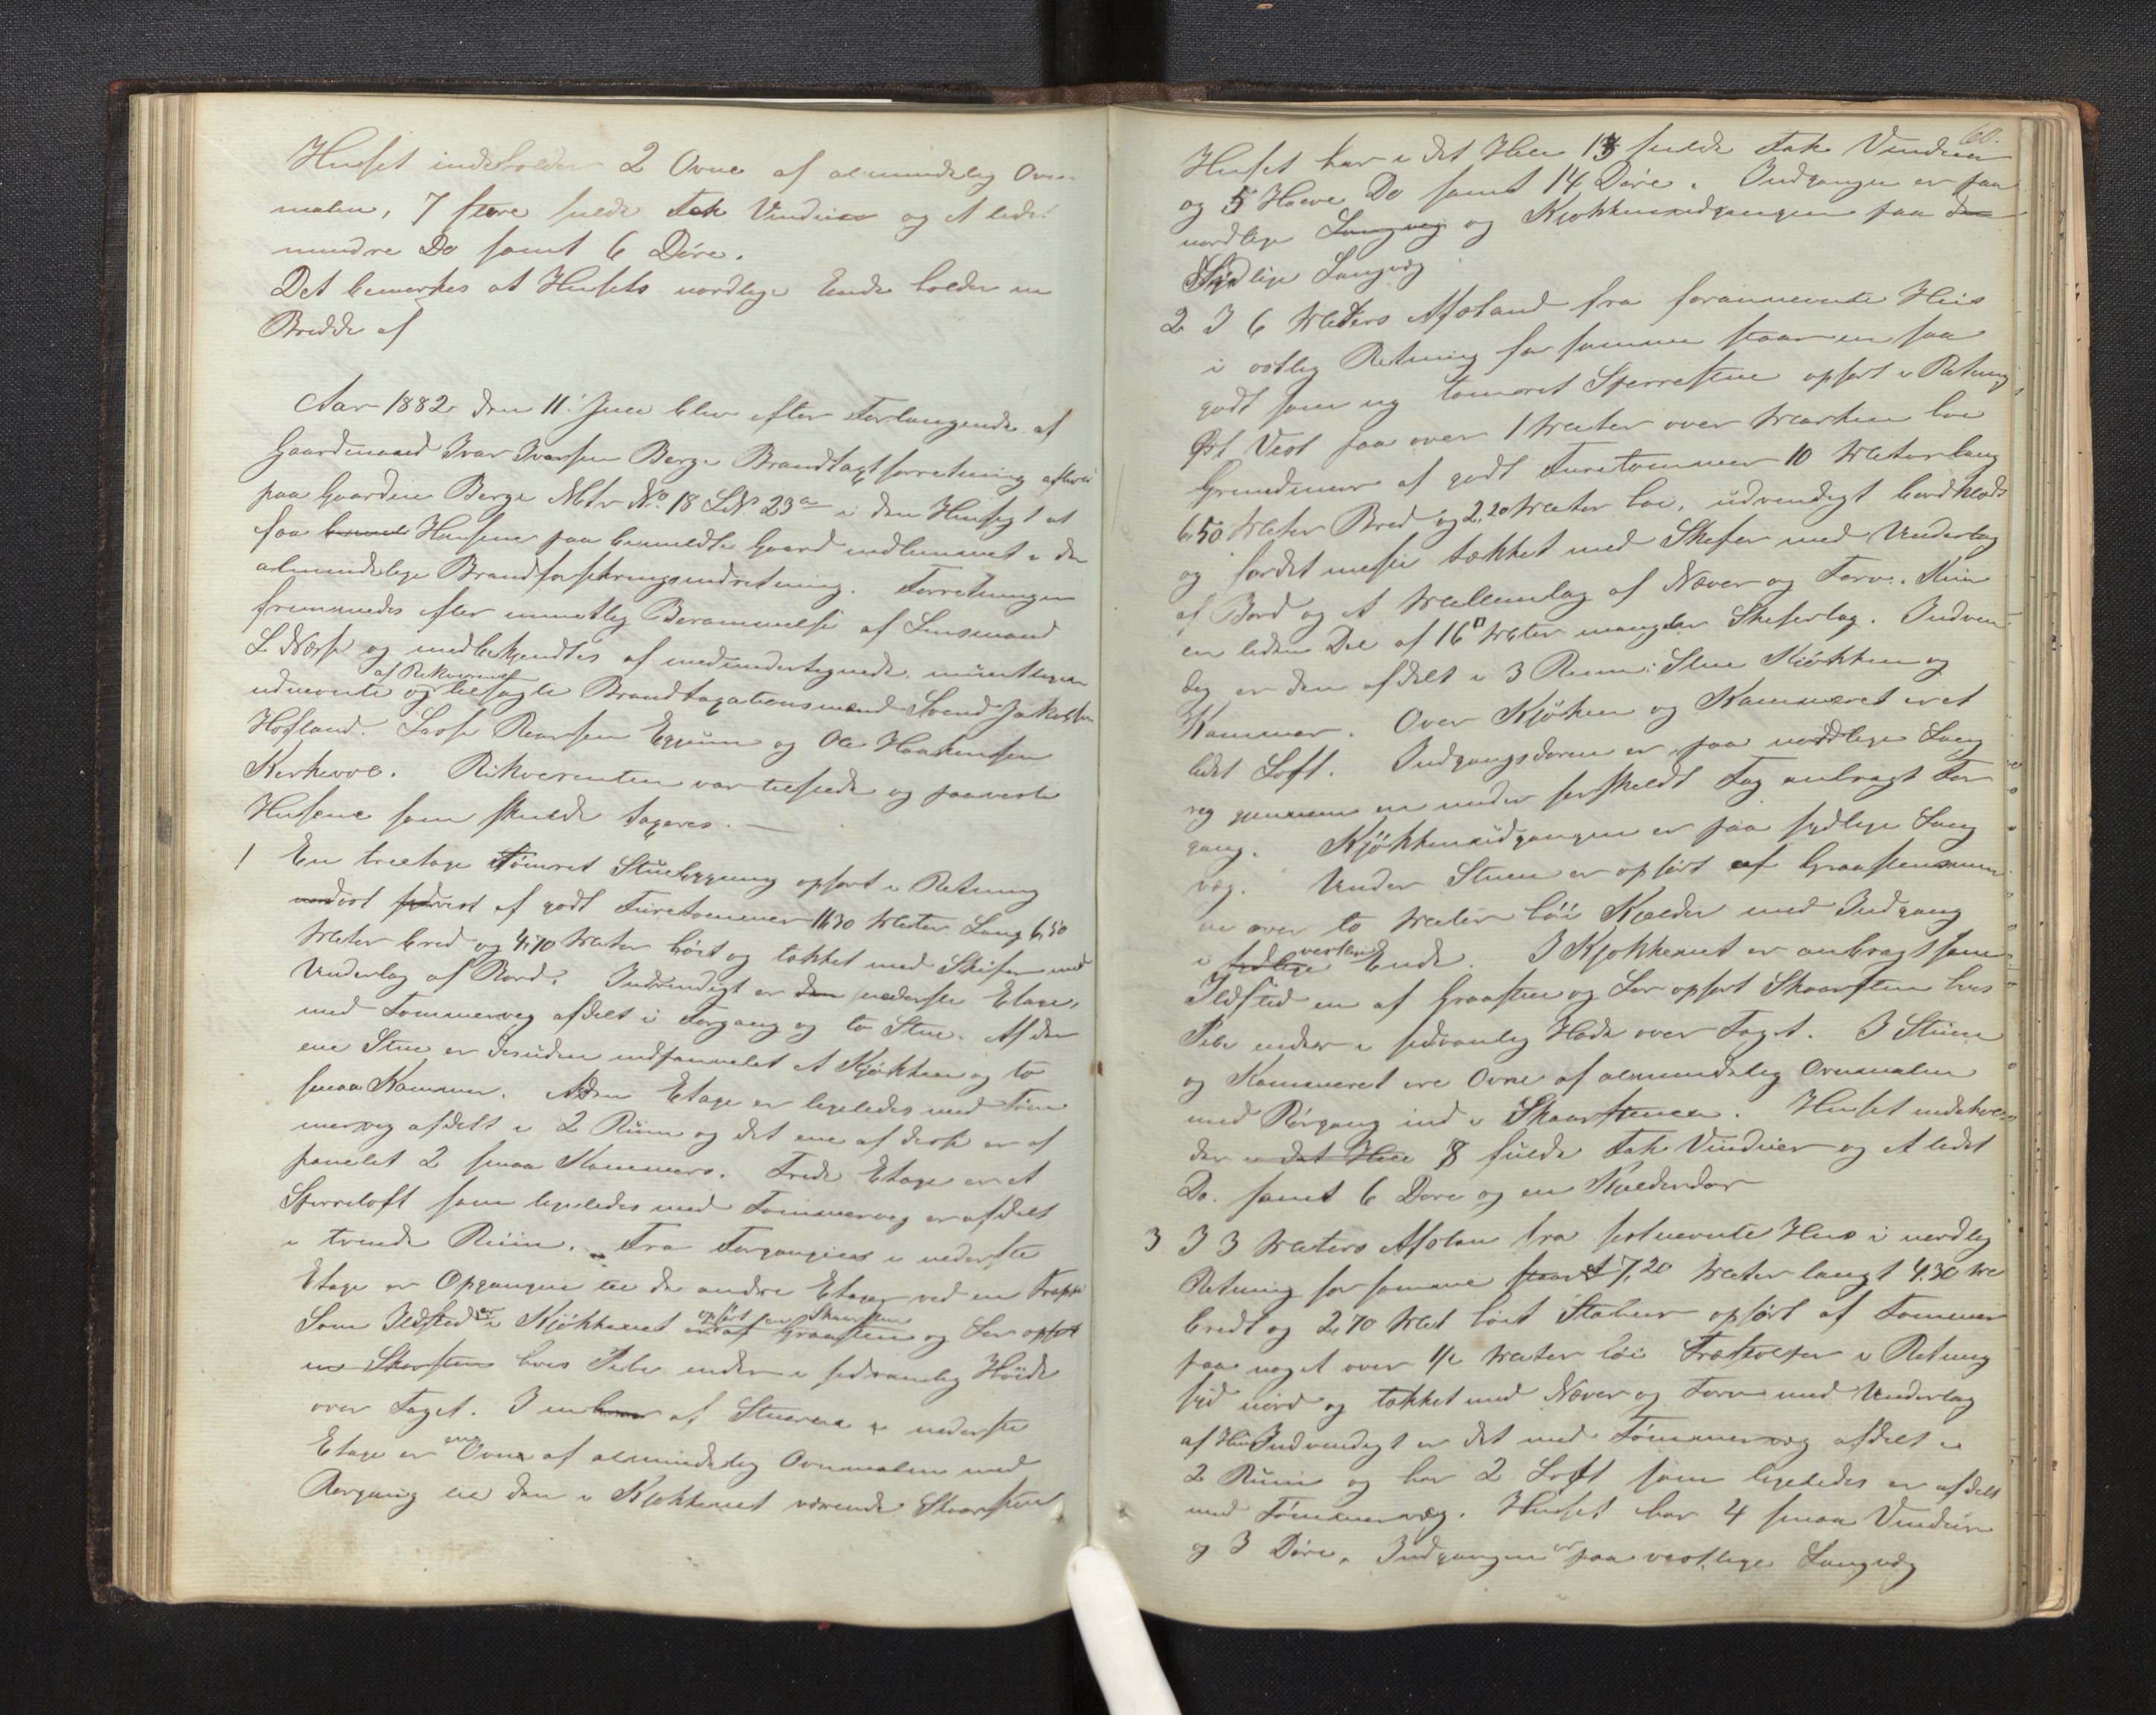 Huset indeholder 2 Ovne af almindelig Ovns-
malm, 7 store fulde Fak Vinduer og et lidet
mindre Do samt 6 Døre.
Det bemærkes at Husets nordlige Ende holder en
Bredde af
Aar 1882 den 11' Juli blev efter Forlangende af
Gaardmand Ivar Ivarsen Berge Brandtaxtforretning afholdt
paa Gaarden Berge Mtr No 18 LN. 23a i den Hensigt at
faa Husene paa bemeldte Gaard indlemmet i den
almindelige Brandforsikringsindretning. Forretningen
fremmedes efter mundtlig Berammelse af Lensmand
L. Næse og medbekjendtes af medundertegnede
af Rekvirenten
udnævnte og tilsagte Brandtaxationsmænd Svend Jakobsen
Hovland. Lasse Rearsen Eggum og Ole Haakensen
Kirkevoll. Rikverenten var tilstede og paaviste
Husene som skulde taxeres.
1 En treetage Tømret Stuebygning opført i Retning
nordost sydvest af godt Furetømmer 11,30 Meter Lang 6,50
Meter bred og 4,70 Meter høit og tækket med Skifer med
Underlag af Bord. Indvendigt er den nederste Etage,
med Tømmervæg afdelt i Forgang og to Stue. Af den
ene Stue er desuden indpannelet et Kjøkken og to
smaa Kammer. Anden Etage er ligeledes med Tøm
mervæg afdelt i 2 Rum og det ene af disse er af
panelet 2 smaa Kammers. Tredie Etage er et
Sperreloft som ligeledes med Tømmervæg er afdelt
i tvende Rum. Fra Forgangen i nederste
Etage er Opgangen til de andre Etager ved en Trappe
opført en Skorsten
Som Ildsted er i Kjøkkenet er af Graasten og Ler opført
en Skorsten hvis Pibe ender i sedvanlig Høide
over Taget. I en af Stuerne i nederste
Etage er en Ovne af almindelig Ovnmalm med
Rørgang til den i Kjøkkenet værende Skaarsten
60.
Huset har i det Hele 13 fulde Fak Vinduer
og 5 Halve Do samt 14 Døre. Indgangen er paa
nordlige Langvæg og Kjøkkenudgangen paa den
Sydlige Langvæg
2 I 6 Meters Afstand fra forannævnte Hus
i ostlig Retning for samme staar en saa
godt som ny tømret Sperrestue opført i Retning
Øst Vest paa over 1 Meter over Marken høi
Grundmur af godt Furetømmer 10 Meter lang
6,50 Meter Bred og 2,20 Meter høi, udvendigt bordklædt
og fordetmeste tækket med Skefer med Underlag
af Bord og et Mellemlag af Næver og Torv. Kun
en liden Del af 16□ Meter mangler Skeferlag. Indven
dig er den afdelt i 3 Rum: Stue Kjøkken og
Kammer. Over Kjøkken og Kammeret er et
lidet Loft. Indgangsdøren er paa nordlige Lang
væg gjennem en under serskeldt Tag anbragt For
gang. Kjøkkenudgangen er paa sydlige Lang
væg. Under Stuen er opført af Graastensmur
en over to Meter høi Kjelder med Indgang
vestlige
i sydlige Ende. I Kjøkkenet er anbragt som
Ildsted en af Graasten og Ler opført Skaarsten hvis
Pibe ender i sedvanlig Høide over Taget. I Stuen
og Kammeret ere Ovne af almindelig Ovnmalm
med Rørgang ind i Skaarstenen. Huset indehol-
der i det Hele 8 fulde Fak Vinduer og et lidet
Do. samt 6 Dore og en Kjelderdør
3 I 3 Meters Afstan fra sistnevnte Hus i nordlig
Retning for samme staar et 7,20 Meter langt 4,30 Me
bredt og 2,70 Met høit Stabur opført af Tømmer
paa noget over 1/2 Meter høi Træstolper i Retning
Syd nord og tækket med Næver og Torv med Underlag
af Hun Indvendigt er det med Tømmervæg afdelt i
2 Rum og har 2 Loft som ligeledes er afdelt
med Tømmervæg. Huset har 4 smaa Vinduer
og 3 Døre. Indgangen er paa vestlige Langvæg